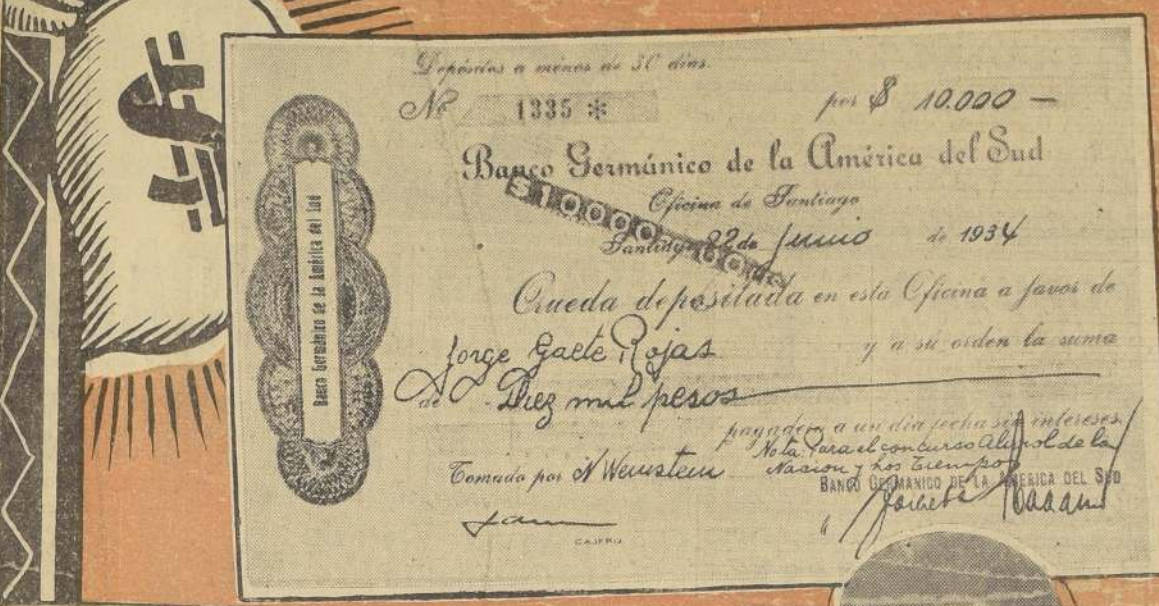 $
Depósitos a ménos de 30 dias.
No 1335 * por $ 10.000 —
Banco Germánico de la América del Sud
Oficina de Santiago
$10000
Santiago 22 de Junio de 1934
Queda depositada en esta Oficina a favor de
Jorge Gaete Rojas y a su orden la suma
de Diez mil pesos
pagadera a un dia fecha sin intereses.
Nota para el concurso Aliviol de la
Nacion y Los Tiempos
Tomada por N Weinstein
BANCO GERMANICO DE LA AMERICA DEL SUD
CAJERO
Banco Germánico de la América del Sud